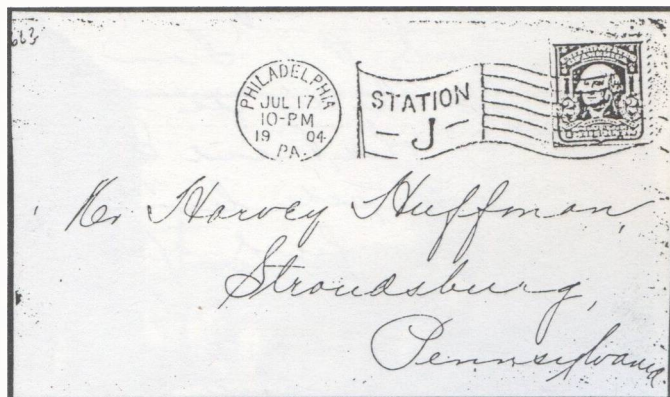 PHILADELPHIA
JUL 17
10-PM
19 04
PA.
STATION
J
2 2
Mr Harvey Huffman,
Stroudsburg,
Pennsylvania.